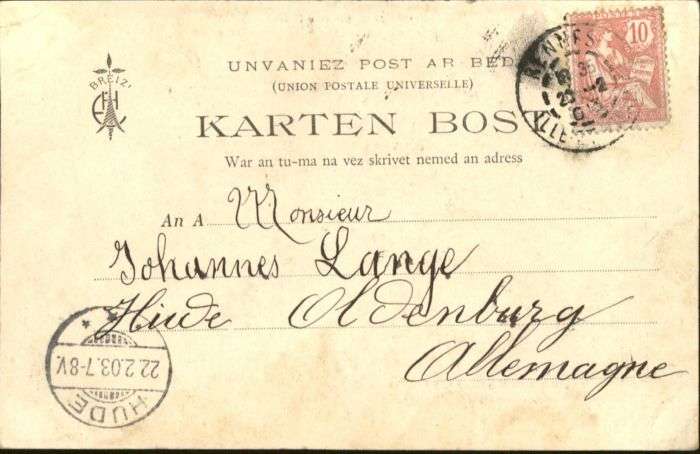 BREIZ'
10
RENNES
UNVANIEZ POST AR BED
(UNION POSTALE UNIVERSELLE)
KARTEN BOS
War an tu-ma na vez skrivet nemed an adress
An A Monsieur
Johannes Lange
Hude Oldenburg
Allemagne
22.2.03.7-8V.
HUDE